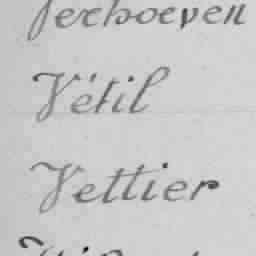 Verhoeven
Vétil
Vettier